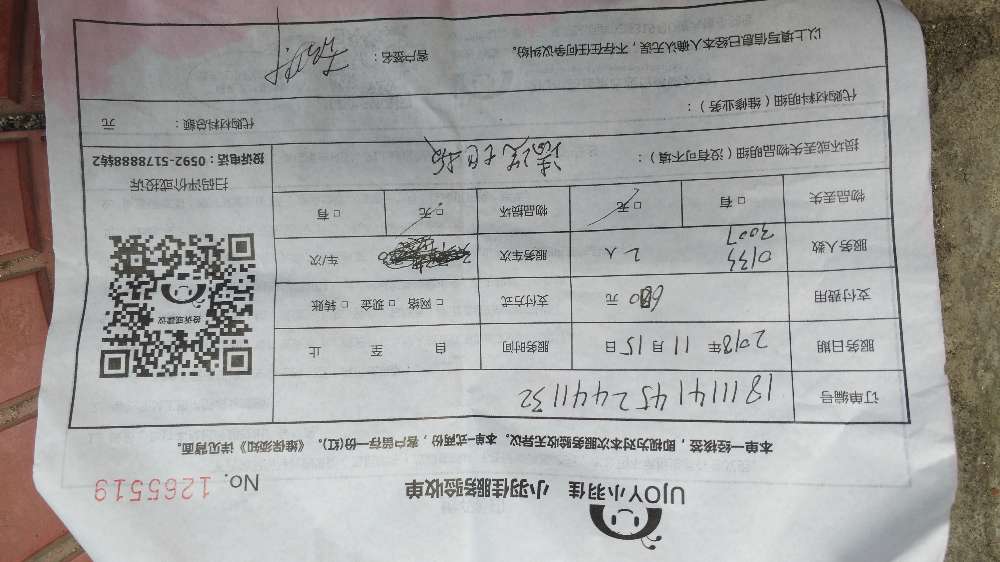 UJOY小羽佳 小羽佳服务验收单 No. 1265519
本单一经核签，即视为对本次服务验收无异议。本单一式两份，客户留存一份(红)。《维保须知》详见背面。
订单编号 18111414524441132
服务日期 2018年 11月 15日 服务时间 自 至 止
支付费用 600元 支付方式 □ 网络 □ 现金 □ 转账
服务人数 0139 3007 2人 服务车次 车/次
物品丢失 □有 □无 物品损坏 □无 □有
投诉或建议
扫码评价或投诉
投诉电话：0592-5178888转2
损坏或丢失物品明细（没有可不填）：
代购材料明细（维修业务）：
代购材料总额： 元
以上填写信息已经本人确认无误，不存在任何争议纠纷。 客户签名：